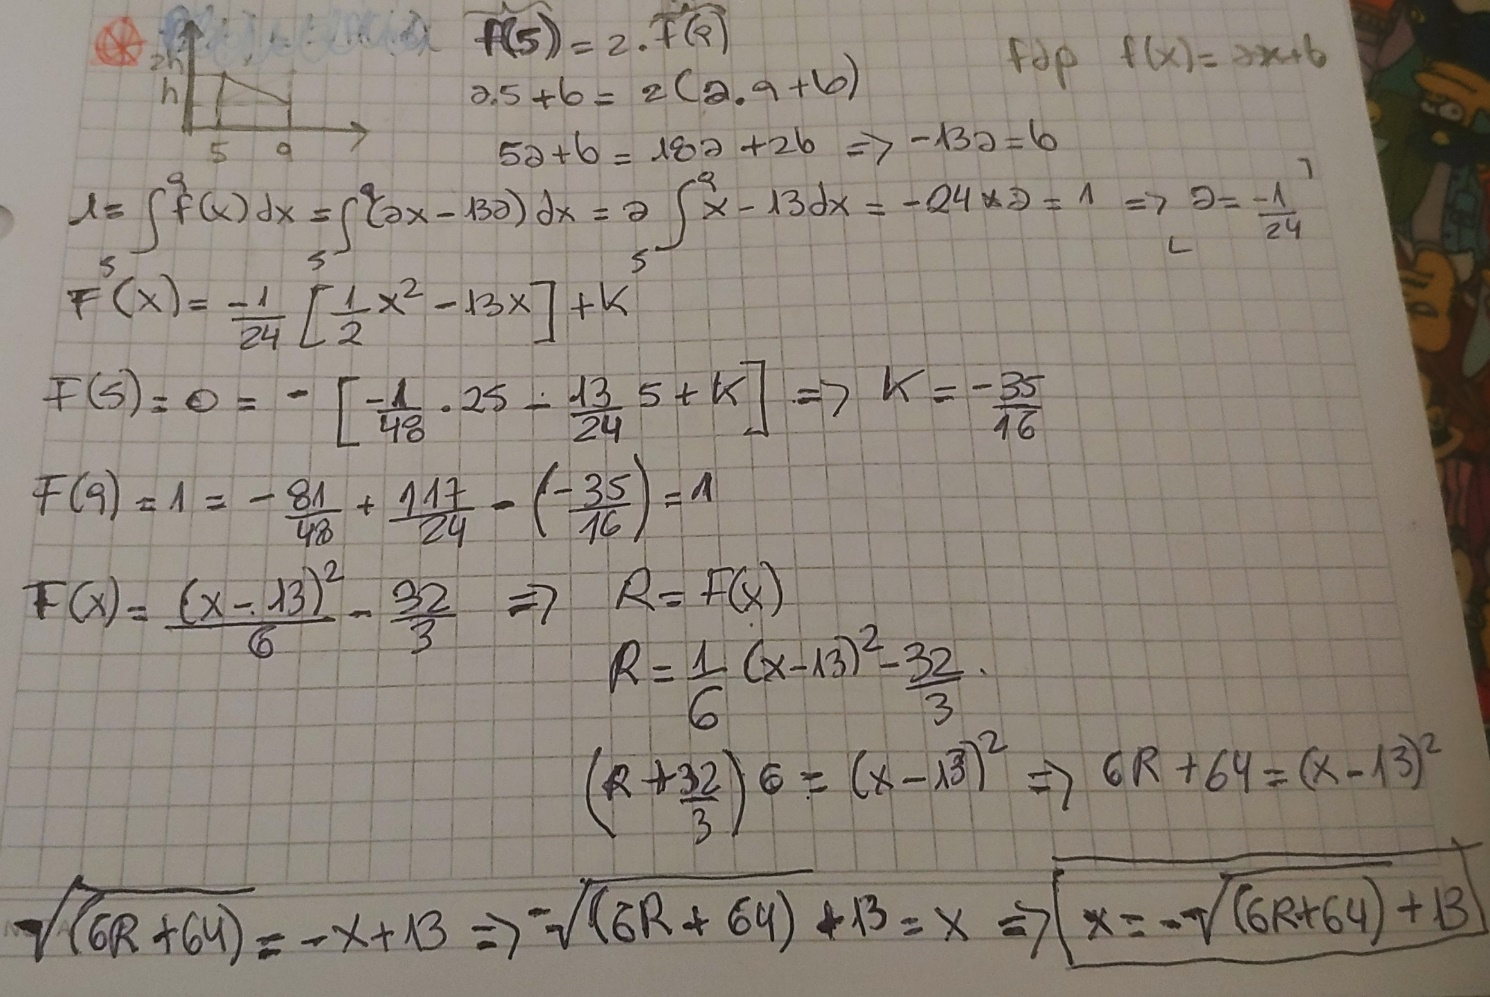 f(5) = 2 . f(9)
fdp f(x) = ax+b
2h
h
5 9
a.5+b = 2(a.9+b)
5a+b = 18a+2b => -13a=b
1 = ∫₅⁹ f(x)dx = ∫₅⁹ (ax-13a)dx = a ∫₅⁹ x-13dx = -24 * a = 1 => a = -1/24
F(x) = -1/24 [1/2 x² - 13x] + K
F(5) = 0 = - [-1/48 . 25 - 13/24 5 + K] => K = -35/16
F(9) = 1 = -81/48 + 117/24 - (-35/16) = 1
F(x) = (x-13)²/6 - 32/3 => R = F(x)
R = 1/6 (x-13)² - 32/3.
(R + 32/3) 6 = (x-13)² => 6R + 64 = (x-13)²
√(6R+64) = -x+13 => -√(6R+64) + 13 = x => x = -√(6R+64) + 13